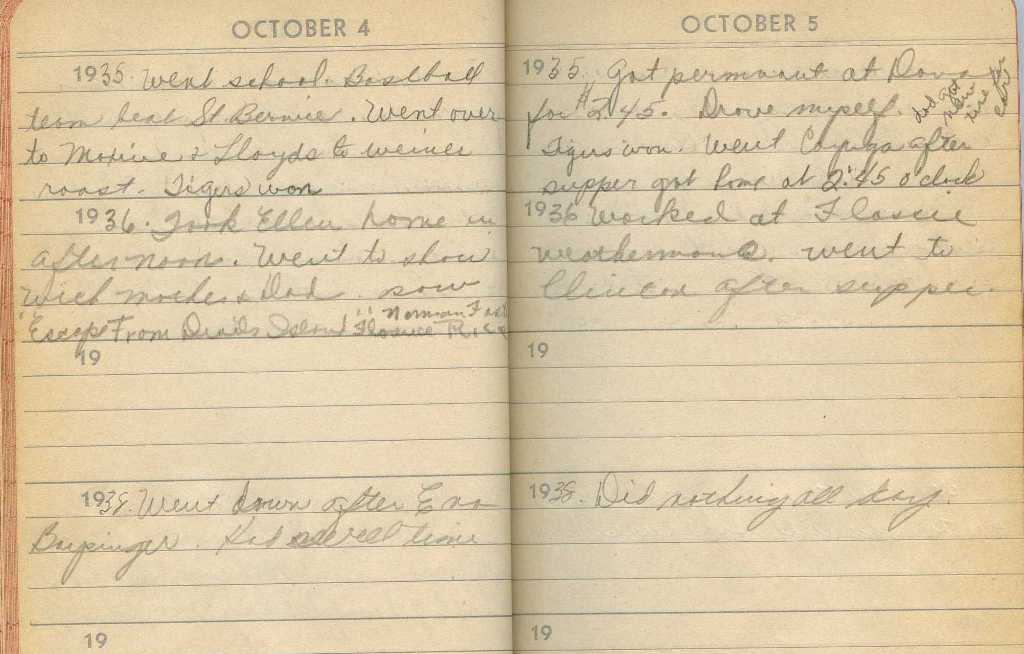 OCTOBER 4
1935. Went school. Baseball
team beat St. Bernice. Went over
to Maxine & Lloyds to weiner
roast. Tigers won
1936. Took Ellen home in
afternoon. Went to show
with mother & Dad. saw
"Escape From Devils Island" Norman Foster
Florence Rice
19
1938. Went down after Eva
. Had swell time
19
OCTOBER 5
1935. Got permanent at Dora
for $2.45. Drove myself. Dad got new tire for car
Tigers won. Went Cayuga after
supper got home at 2:45 o'clock
1936 Worked at Flossie
. went to
Clinton after supper.
19
1938. Did nothing all day.
19